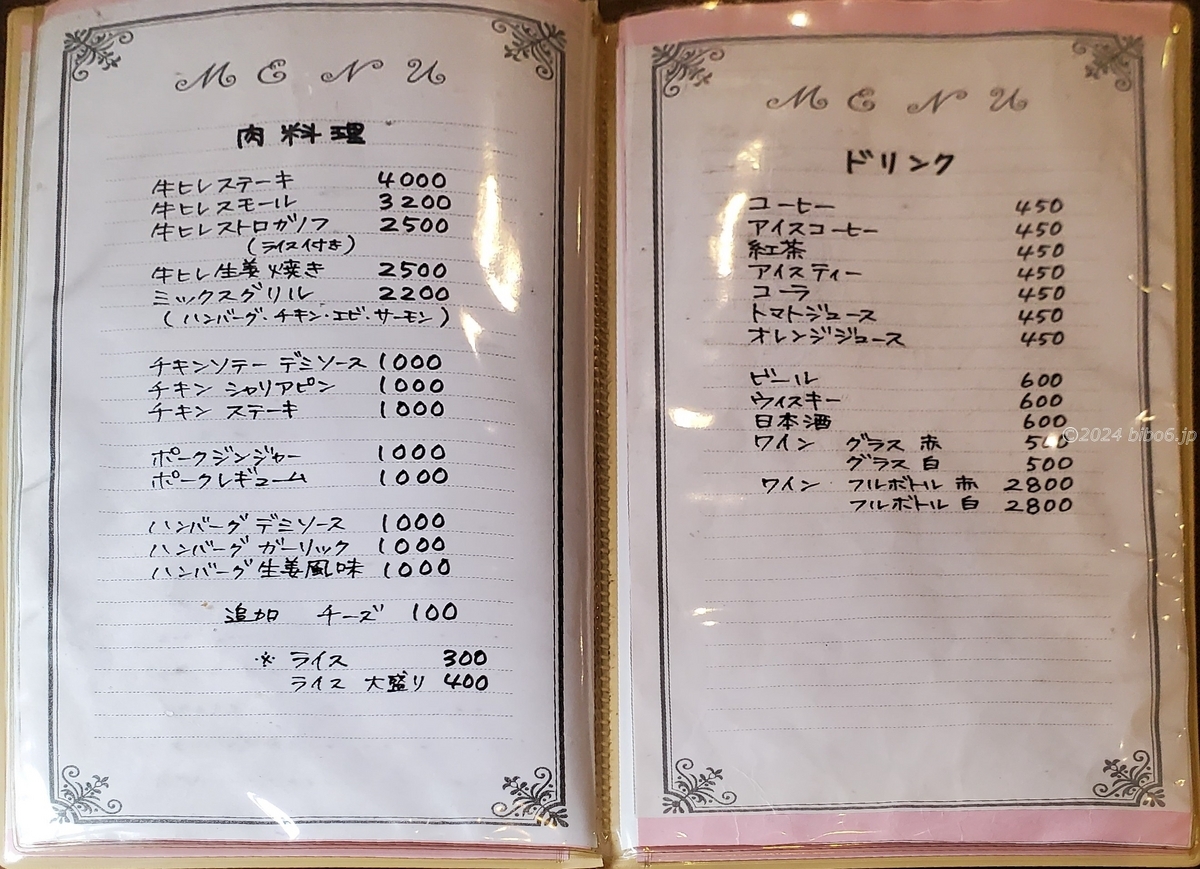 MENU
肉料理
牛ヒレステーキ 4000
牛ヒレスモール 3200
牛ヒレストロガノフ 2500
(ライス付き)
牛ヒレ生姜焼き 2500
ミックスグリル 2200
(ハンバーグ・チキン・エビ・サーモン)
チキンソテー デミソース 1000
チキン シャリアピン 1000
チキン ステーキ 1000
ポークジンジャー 1000
ポークレギューム 1000
ハンバーグ デミソース 1000
ハンバーグ ガーリック 1000
ハンバーグ 生姜風味 1000
追加 チーズ 100
※ ライス 300
ライス 大盛り 400
MENU
ドリンク
コーヒー 450
アイスコーヒー 450
紅茶 450
アイスティー 450
コーラ 450
トマトジュース 450
オレンジジュース 450
ビール 600
ウィスキー 600
日本酒 600
ワイン グラス 赤 500
グラス 白 500
ワイン フルボトル 赤 2800
フルボトル 白 2800
©2024 bibo6.jp